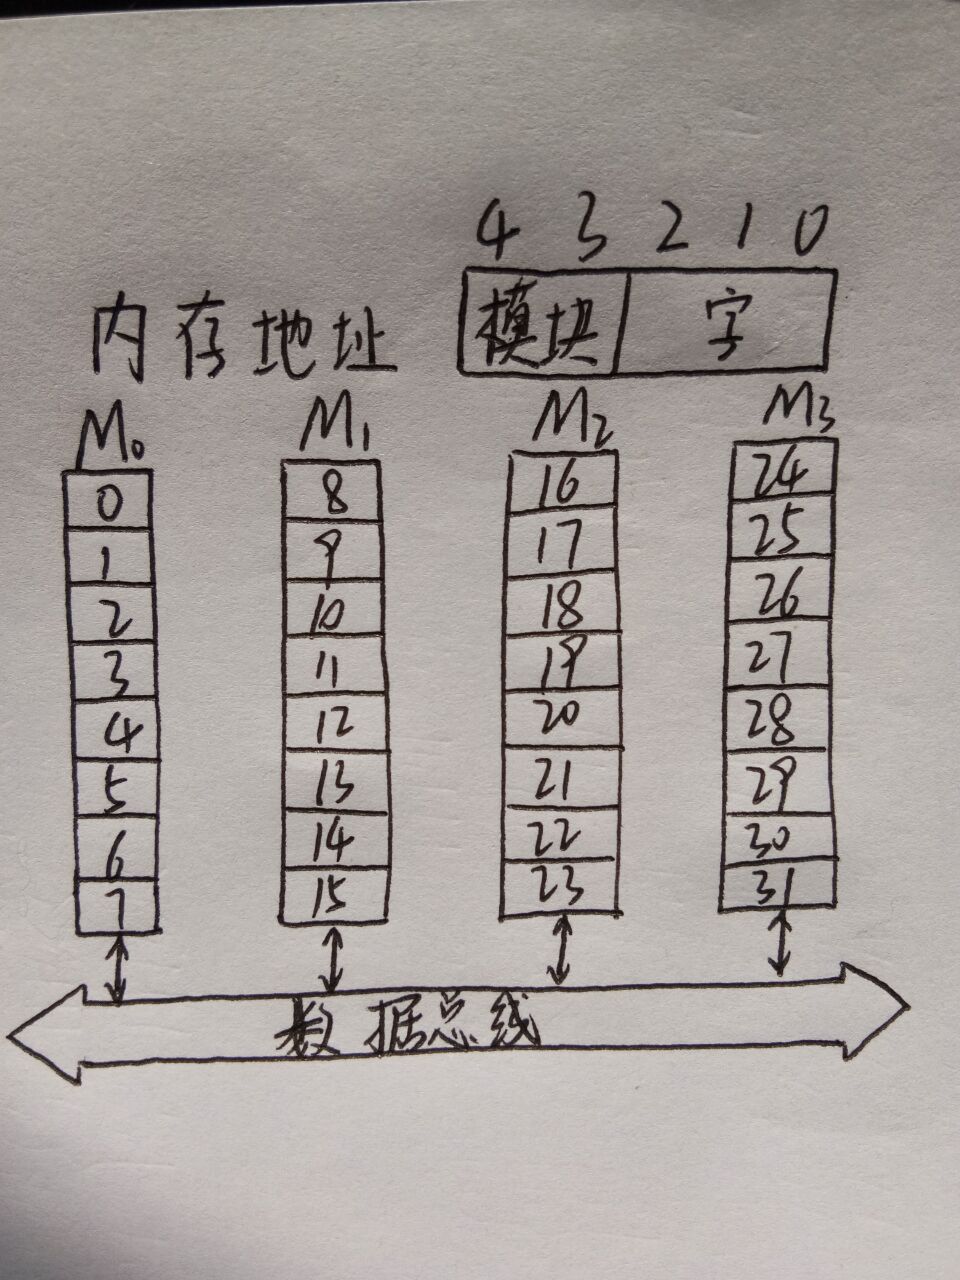 4 3 2 1 0
内存地址 模块 字
M₀ M₁ M₂ M₃
0 8 16 24
1 9 17 25
2 10 18 26
3 11 19 27
4 12 20 28
5 13 21 29
6 14 22 30
7 15 23 31
数据总线